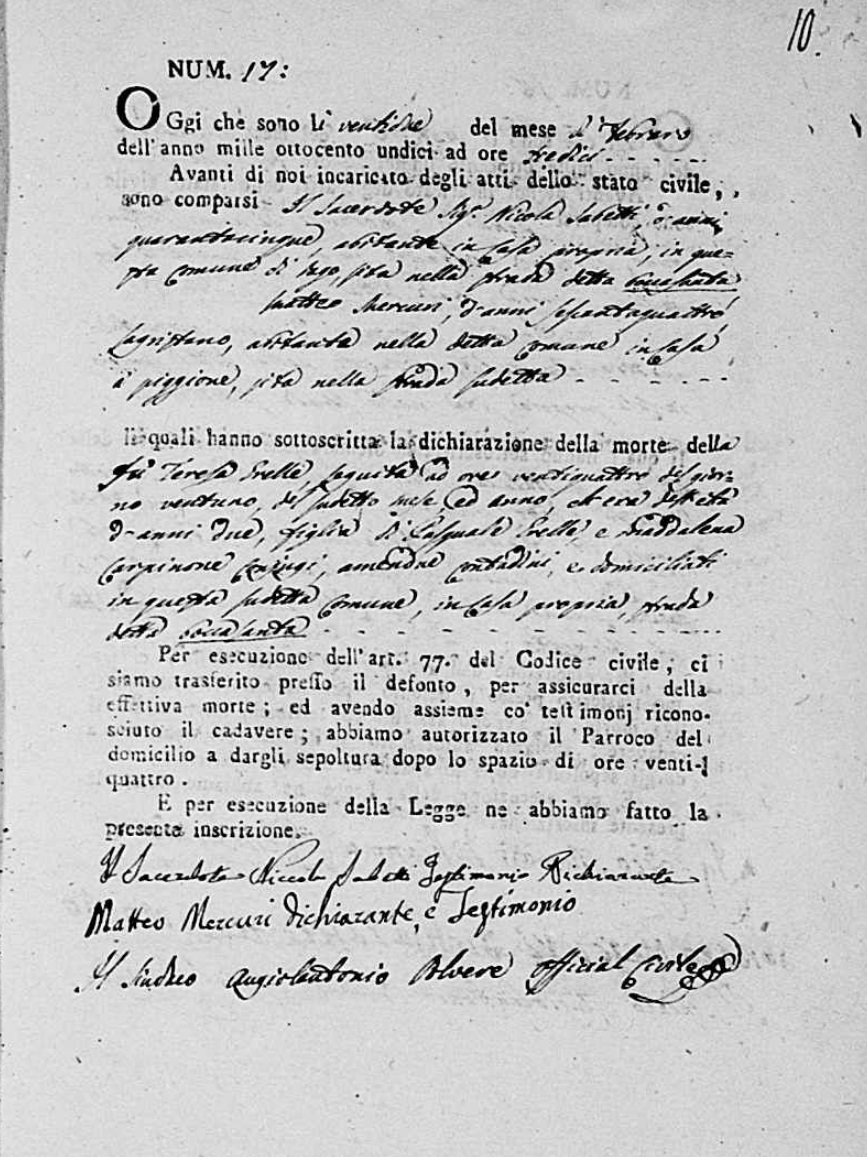 10.
NUM. 17:
OGgi che sono li ventidue del mese di Febraro
dell'anno mille ottocento undici ad ore tredici - - - - - -
Avanti di noi incaricato degli atti dello stato civile,
sono comparsi Il Sacerdote Sig.r Nicola Sabetti, d'anni
quarantacinque, abitante in Casa propria, in que=
sta Comune di, sita nella strada detta
Matteo Mercuri, d'anni sessantaquattro
Sagristano, abitante nella detta Comune in Casa
a piggione, sita nella strada sudetta - - - - - -
li quali hanno sottoscritta la dichiarazione della morte della
fù Teresa, seguita ad ore ventiquattro del gior=
no ventuno, del sudetto mese, ed anno, ch'era dell'età
d'anni due, figlia di Pasquale, e Maddalena
Carpinone Conjugi, amendue Contadini, e domiciliati
in questa sudetta Comune, in Casa propria, strada
detta - - - - - - - - -
Per esecuzione dell'art. 77. del Codice civile, ci
siamo trasferito presso il defonto, per assicurarci della
effettiva morte; ed avendo assieme co' testimonj ricono-
sciuto il cadavere; abbiamo autorizzato il Parroco del
domicilio a dargli sepoltura dopo lo spazio di ore venti-
quattro.
E per esecuzione della Legge ne abbiamo fatto la
presente inscrizione.
Il Sacerdote Niccola Sabetti Testimonio Dichiarante
Matteo Mercuri dichiarante, e Testimonio
Il Sindaco Angiolantonio Polvere Official Civile